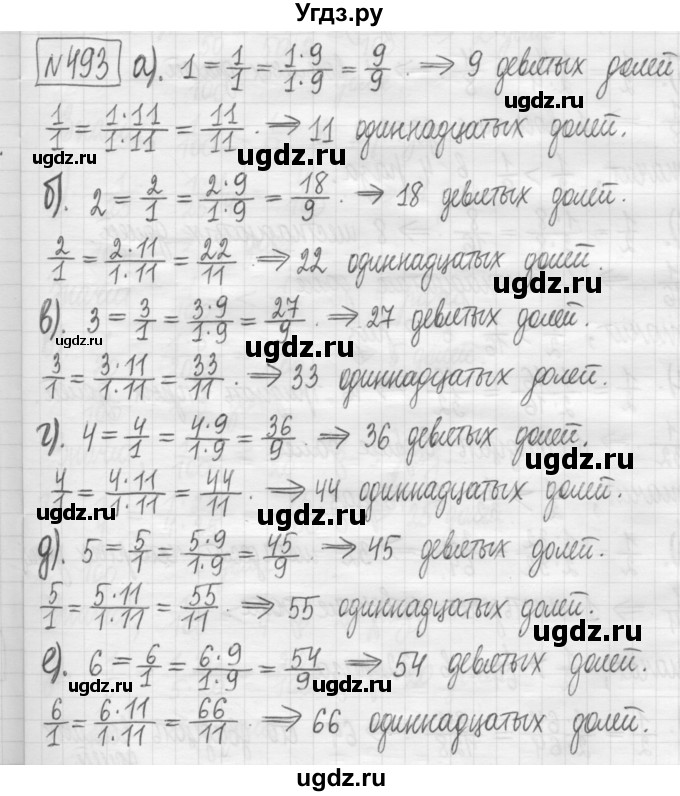 Угдз.ру
№493 а). 1 = 1/1 = 1·9/1·9 = 9/9. ⇒ 9 девятых долей
1/1 = 1·11/1·11 = 11/11. ⇒ 11 одиннадцатых долей.
ugdz.ru ugdz.ru ugdz.ru
б). 2 = 2/1 = 2·9/1·9 = 18/9. ⇒ 18 девятых долей.
2/1 = 2·11/1·11 = 22/11. ⇒ 22 одиннадцатых долей.
ugdz.ru
в). 3 = 3/1 = 3·9/1·9 = 27/9. ⇒ 27 девятых долей.
ugdz.ru
3/1 = 3·11/1·11 = 33/11. ⇒ 33 одиннадцатых долей.
г). 4 = 4/1 = 4·9/1·9 = 36/9 ⇒ 36 девятых долей.
ugdz.ru
4/1 = 4·11/1·11 = 44/11. ⇒ 44 одиннадцатых долей.
ugdz.ru ugdz.ru
д). 5 = 5/1 = 5·9/1·9 = 45/9. ⇒ 45 девятых долей.
5/1 = 5·11/1·11 = 55/11. ⇒ 55 одиннадцатых долей.
ugdz.ru
е). 6 = 6/1 = 6·9/1·9 = 54/9 ⇒ 54 девятых долей.
ugdz.ru ugdz.ru
6/1 = 6·11/1·11 = 66/11. ⇒ 66 одиннадцатых долей.
ugdz.ru
ugdz.ru